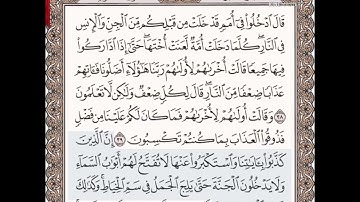 قَالَ ٱدْخُلُوا۟ فِىٓ أُمَمٍ قَدْ خَلَتْ مِن قَبْلِكُم مِّنَ ٱلْجِنِّ وَٱلْإِنسِ
فِى ٱلنَّارِ كُلَّمَا دَخَلَتْ أُمَّةٌ لَّعَنَتْ أُخْتَهَا حَتَّىٰٓ إِذَا ٱدَّارَكُوا۟
فِيهَا جَمِيعًا قَالَتْ أُخْرَىٰهُمْ لِأُولَىٰهُمْ رَبَّنَا هَـٰٓؤُلَآءِ أَضَلُّونَا فَـَٔاتِهِمْ
عَذَابًا ضِعْفًا مِّنَ ٱلنَّارِ قَالَ لِكُلٍّ ضِعْفٌ وَلَـٰكِن لَّا تَعْلَمُونَ
٣٨ وَقَالَتْ أُولَىٰهُمْ لِأُخْرَىٰهُمْ فَمَا كَانَ لَكُمْ عَلَيْنَا مِن فَضْلٍ
فَذُوقُوا۟ ٱلْعَذَابَ بِمَا كُنتُمْ تَكْسِبُونَ ٣٩ إِنَّ ٱلَّذِينَ
كَذَّبُوا۟ بِـَٔايَـٰتِنَا وَٱسْتَكْبَرُوا۟ عَنْهَا لَا تُفَتَّحُ لَهُمْ أَبْوَٰبُ ٱلسَّمَآءِ
وَلَا يَدْخُلُونَ ٱلْجَنَّةَ حَتَّىٰ يَلِجَ ٱلْجَمَلُ فِى سَمِّ ٱلْخِيَاطِ وَكَذَٰلِكَ